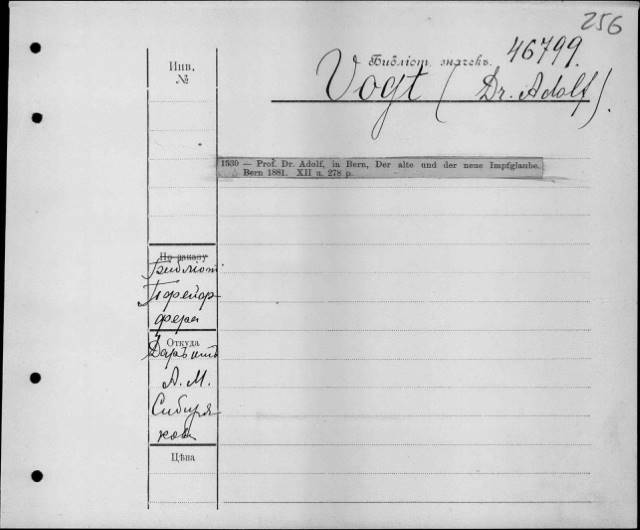 256
46799.
Инв.
№
Библіот. значекъ.
Vogt (Dr. Adolf).
1539 — Prof. Dr. Adolf, in Bern, Der alte und der neue Impfglaube.
Bern 1881. XII u. 278 p.
По заказу
Библіот
фера
Откуда
Даръ отъ
А. М.
Сибиря-
кова
Цѣна